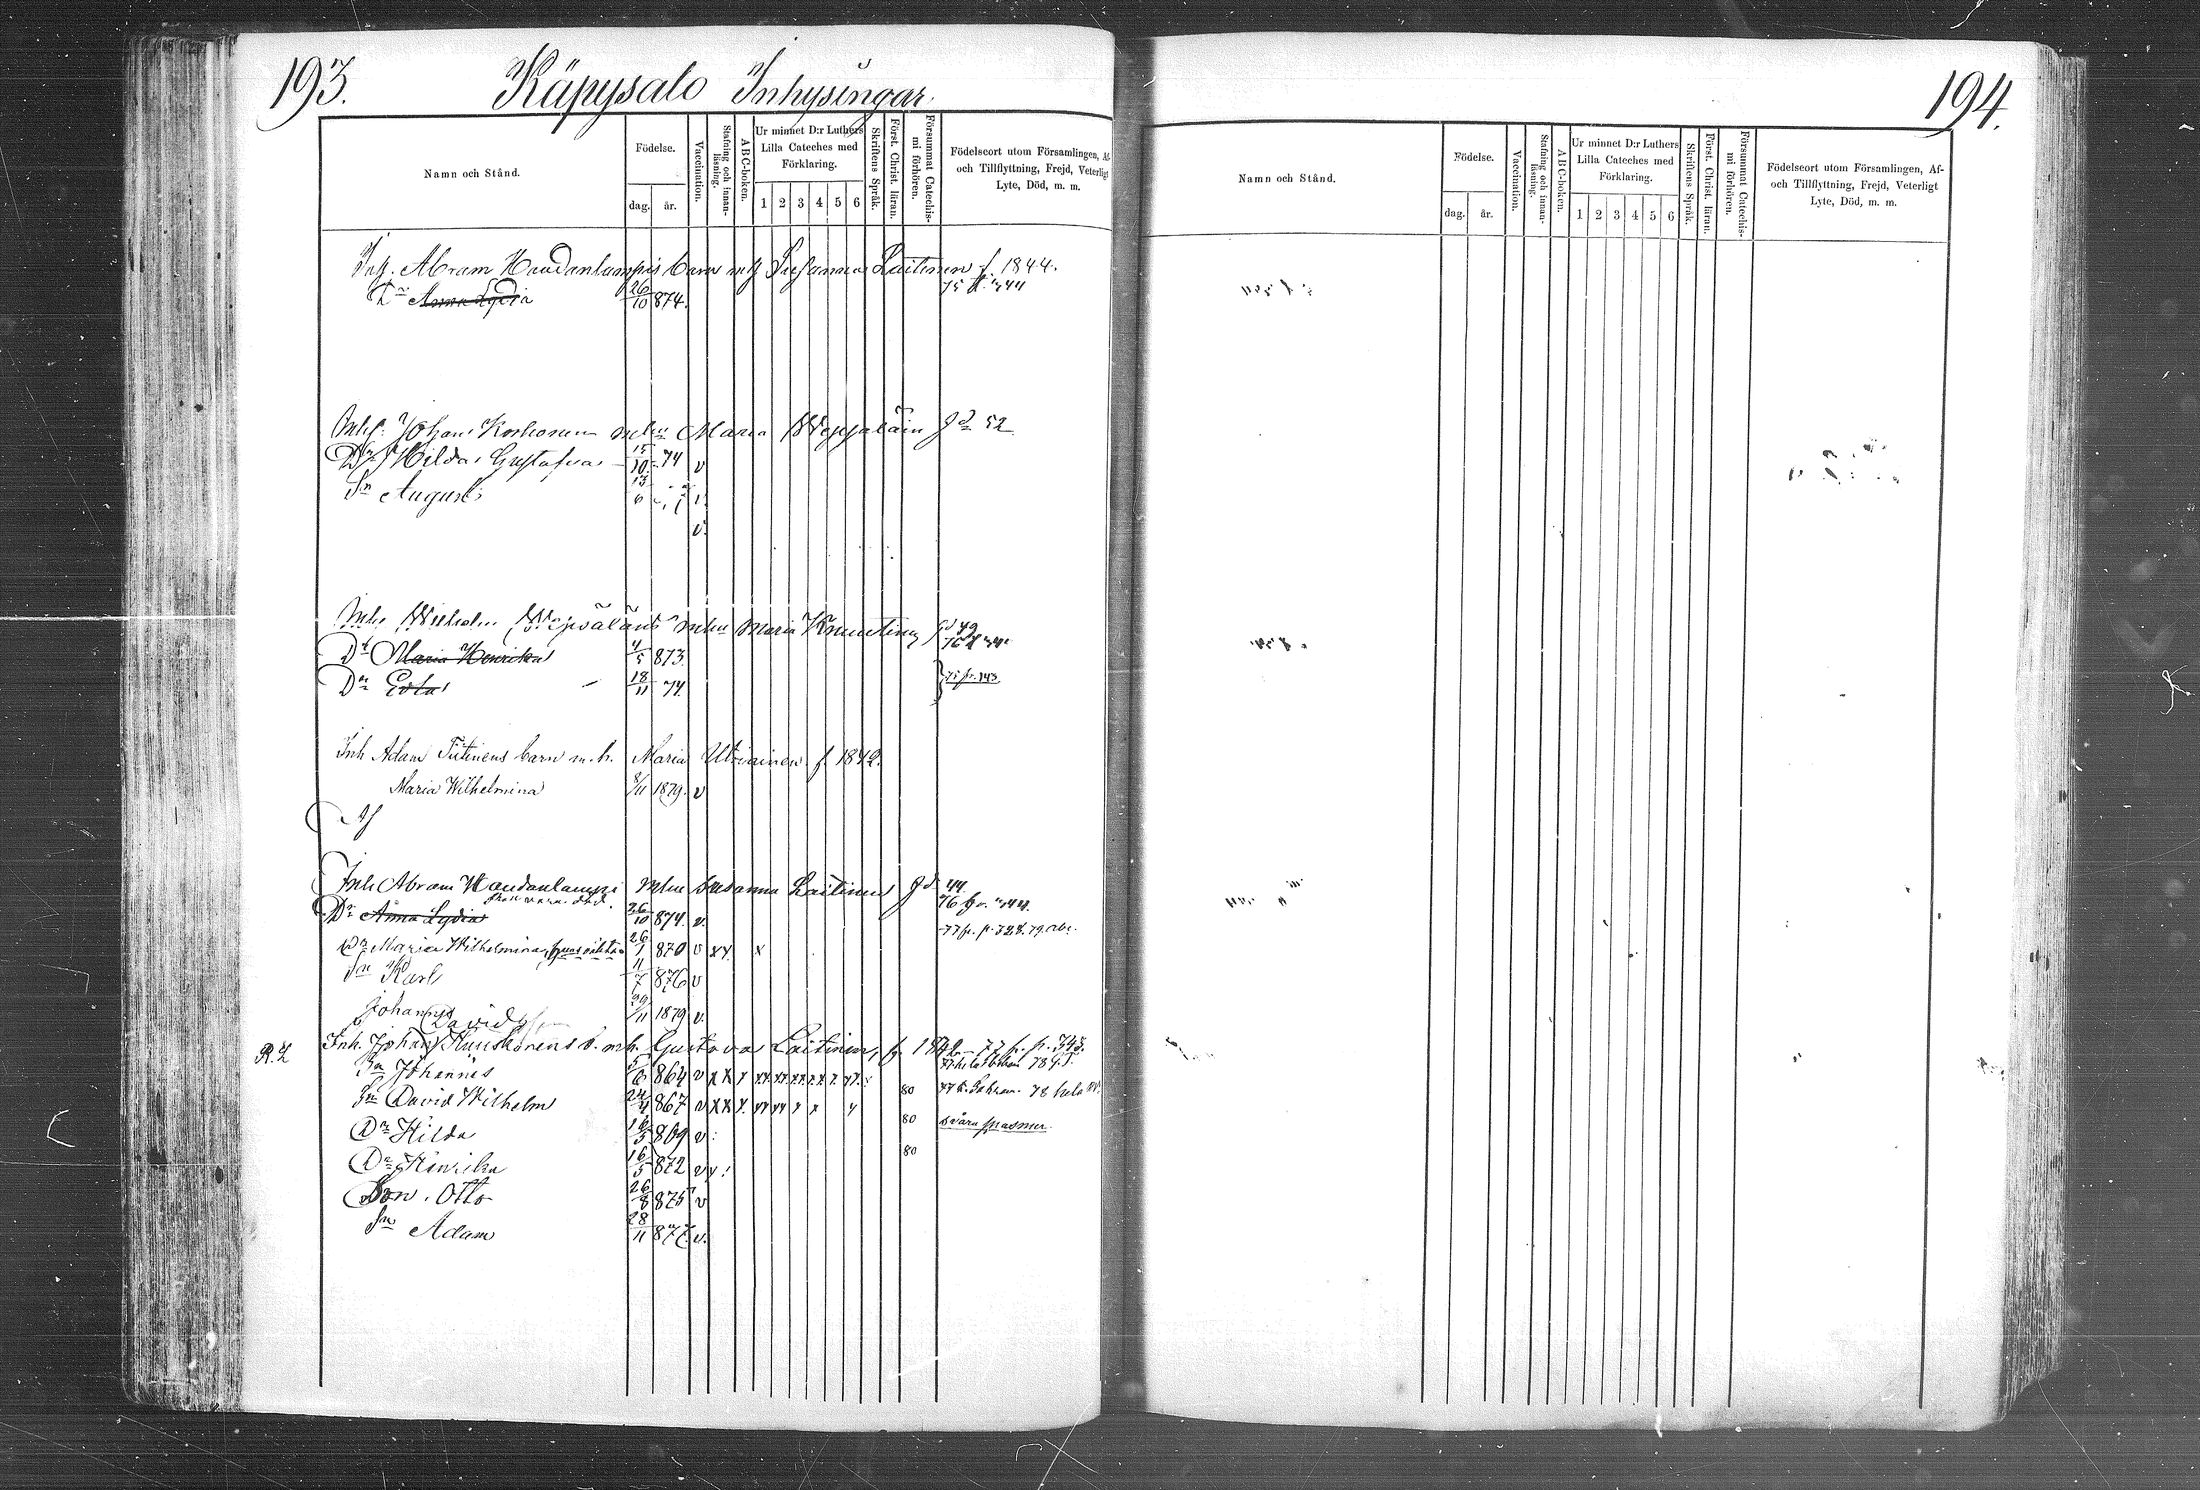 193.
Käpysalo Inhysingar
Namn och Stånd.
Födelse.
dag.
år.
Vaccination.
Stafning och innan-läsning.
ABC-boken.
Ur minnet D:r Luthers
Lilla Cateches med
Förklaring.
1 2 3 4 5 6
Skriftens Språk.
Först. Christ. läran.
Försummat Catechis-mi förhören.
Födelseort utom Församlingen, Af-
och Tillflyttning, Frejd, Veterligt
Lyte, Död, m. m.
Inh. Abram Haudanlampis barn m h Susanna Laitinen f. 1844.
Dr Anna Lydia 26/10 874.
Inh. Johan Korhonen mhu Maria f d 52
Dr Hilda Gustafva 15/10 74 v
Sn August v
v.
Inh Wilhelm mhu Maria f d 49
Dr Maria Henrika 4/5 873.
Dr Edla 18/11 74. 75 fr. 143
Inh Adam Tiitinens barn m. h. Maria Utriainen f 1842.
Maria Wilhelmina 8/11 1879. v
Af
Inh Abram Haudanlampi mhu Susanna Laitinen f d 44
Dr Anna Lydia 26/10 874. v.
Dr Maria Wilhelmina 26/1 870 v xx. x
Sn Karl 11/7 876 v
Johannes David 29/11 1879 v.
R. I Inh. Johan b. m h. Gustava Laitinen, f. 1842
Sn Johannes 5/6 864 v x x x
Sn David Wilhelm 24/4 867 v x x x 80
Dr Hilda 16/5 869 v 80 svåra spasmer.
Dr Henrika 16/5 872 v x 80
Son. Otto 26/8 875 v
Sn Adam 28/11 877. v.
194.
Namn och Stånd.
Födelse.
dag.
år.
Vaccination.
Stafning och innan-läsning.
ABC-boken.
Ur minnet D:r Luthers
Lilla Cateches med
Förklaring.
1 2 3 4 5 6
Skriftens Språk.
Först. Christ. läran.
Försummat Catechis-mi förhören.
Födelseort utom Församlingen, Af-
och Tillflyttning, Frejd, Veterligt
Lyte, Död, m. m.